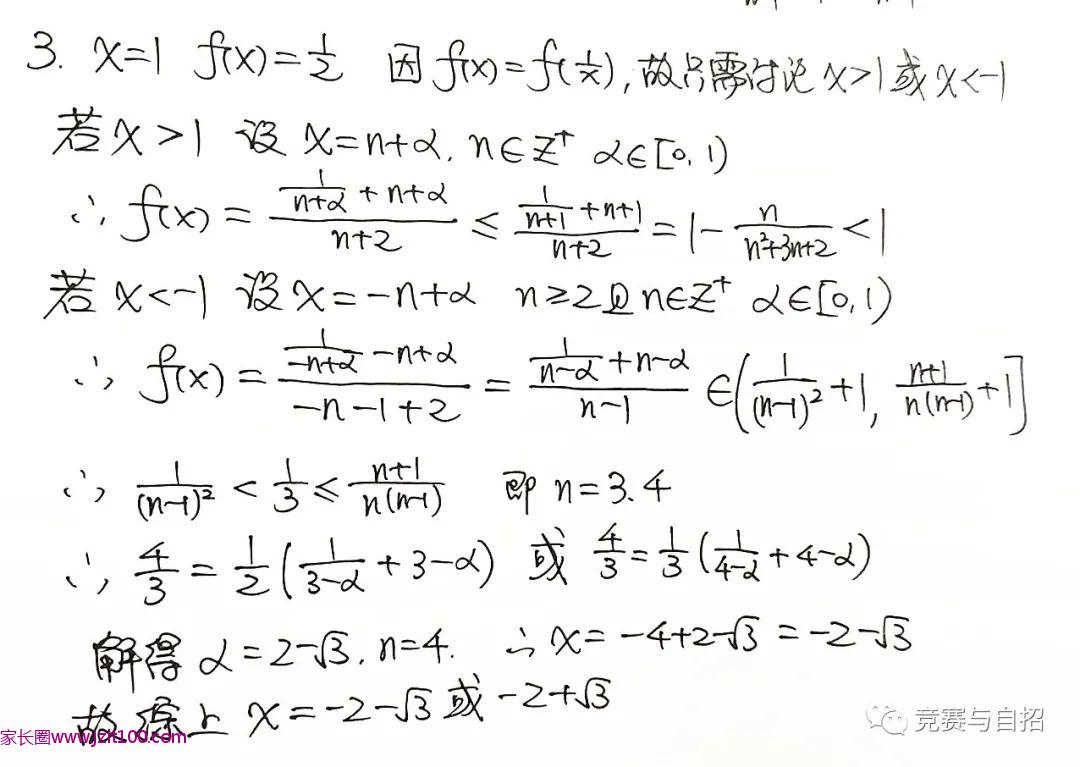 3. x=1 f(x)=1/2 因f(x)=f(1/x),故只需讨论x>1或x<-1
若x>1 设x=n+α, n∈Z⁺ α∈[0,1)
∴ f(x)=(1/(n+α)+n+α)/(n+2)≤(1/(n+1)+n+1)/(n+2)=1-n/(n²+3n+2)<1
若x<-1 设x=-n+α n≥2且n∈Z⁺ α∈[0,1)
∴ f(x)=(1/(-n+α)-n+α)/(-n-1+2)=(1/(n-α)+n-α)/(n-1)∈(1/(n-1)²+1, (n+1)/(n(n-1))+1]
∴ 1/(n-1)²<1/3≤(n+1)/(n(n-1)) 即n=3.4
∴ 4/3=1/2(1/(3-α)+3-α) 或 4/3=1/3(1/(4-α)+4-α)
解得α=2-√3, n=4. ∴x=-4+2-√3=-2-√3
故综上x=-2-√3或-2+√3
家长圈www.jzlt100.com
竞赛与自招